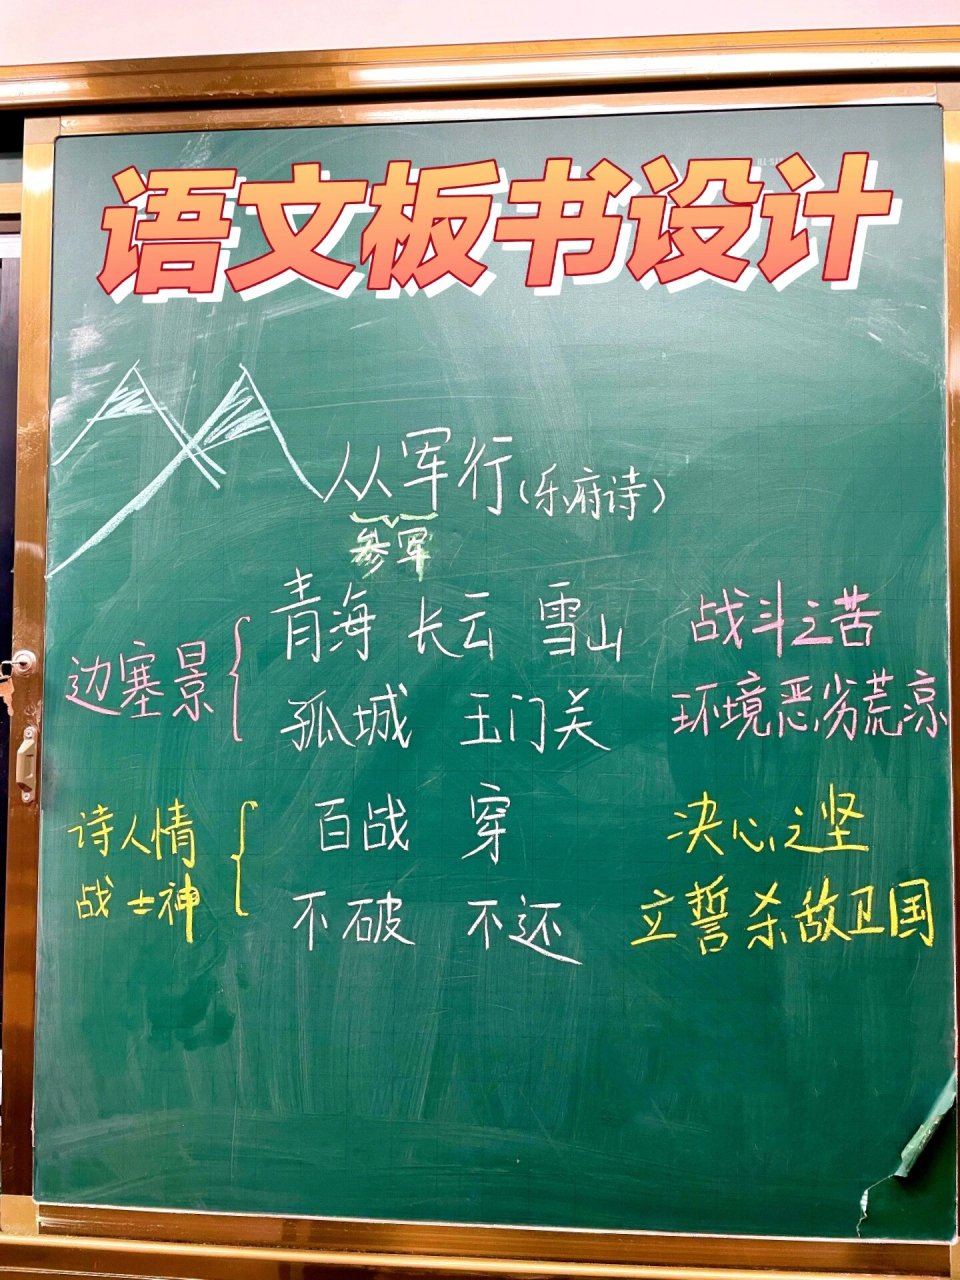 语文板书设计
从军行（乐府诗）
参军
边塞景
青海 长云 雪山 战斗之苦
孤城 玉门关 环境恶劣荒凉
诗人情
战士神
百战 穿 决心之坚
不破 不还 立誓杀敌卫国